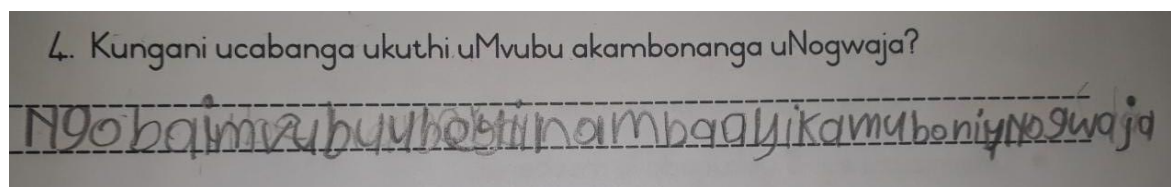 4. Kungani ucabanga ukuthi uMvubu akambonanga uNogwaja?
NgobaimvubuyuhestinambaayikamuboniyNogwaja